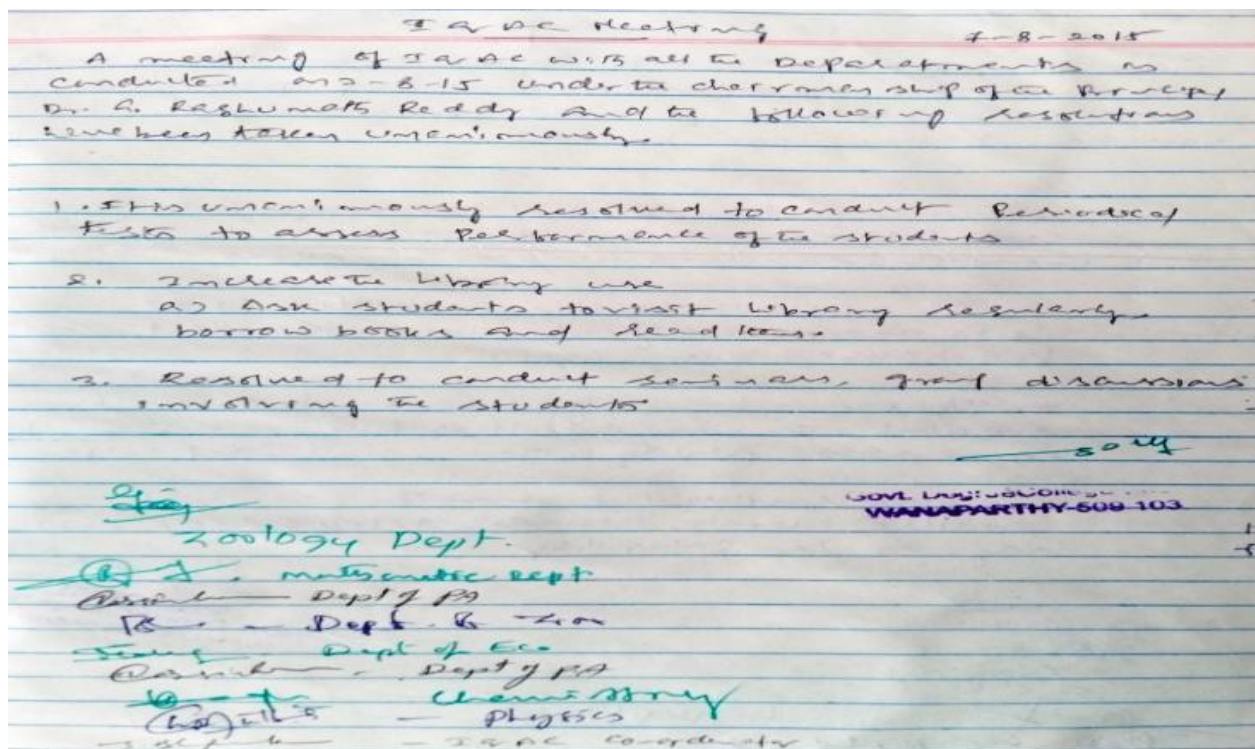 IQAC Meeting
7-8-2015
A meeting of IQAC with all the Departments is
conducted on 7-8-15 under the chairmanship of the Principal
Dr. G. Raghunath Reddy and the following resolutions
have been taken unanimously.
1. It is unanimously resolved to conduct Periodical
tests to assess Performance of the students
2. Increase the Library use
a) Ask students to visit Library regularly
borrow books and read them.
3. Resolved to conduct seminars, group discussions
involving the students
GOVT. College
WANAPARTHY-509 103
Zoology Dept.
Dept
Dept of PA
Dept
Dept of Eco
Dept of PA
Chemistry
Physics
- IQAC Co-ordinator